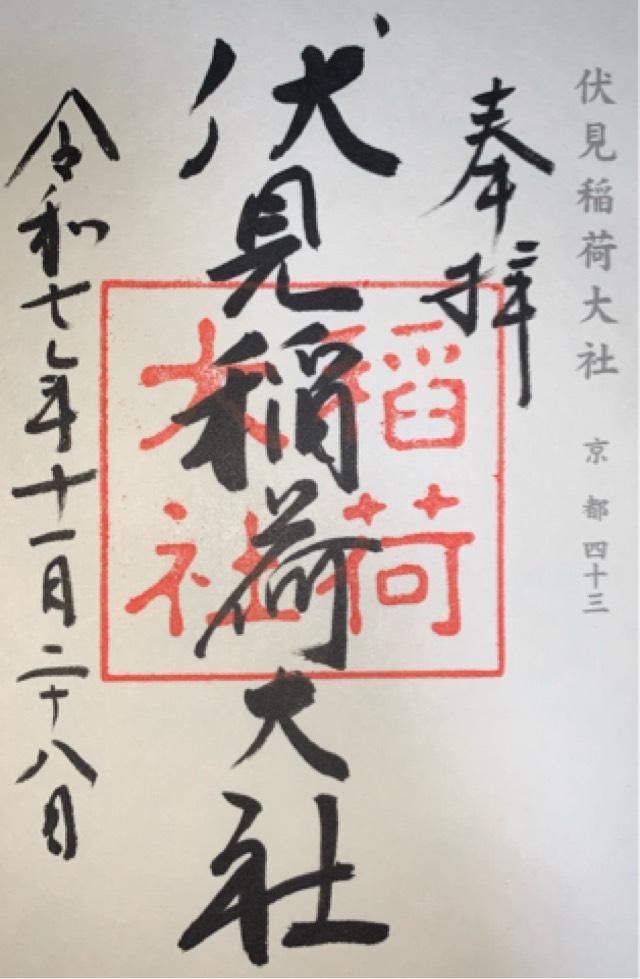 伏見稲荷大社 京都四十三
奉拝
伏見稲荷大社
稲荷
大社
令和七年十一月二十八日